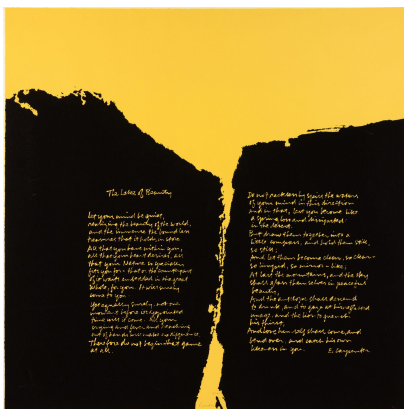 The Lake of Beauty
Let your mind be quiet,
realising the beauty of the world,
and the immense the boundless
treasures that it holds in store
All that you have within you,
all that your heart desires, all
that your Nature so specially
fits you for - that or the counterpart
of it waits embedded in the great
Whole, for you. It will surely
come to you.
Yet equally surely not one
moment before its appointed
time will it come. All your
crying and fever and reaching
out of hands will make no difference.
Therefore do not begin that game
at all.
Do not recklessly spill the waters
of your mind in this direction
and in that, lest you become like
a spring lost and dissipated
in the desert.
But draw them together into a
little compass, and hold them still,
so still;
And let them become clear, so clear -
so limpid, so mirror-like;
At last the mountains and the sky
shall glass themselves in peaceful
beauty,
And the antelope shall descend
to drink, and to gaze at his reflected
image, and the lion to quench
his thirst,
And Love himself shall come and
bend over, and catch his own
likeness in you. E. Carpenter